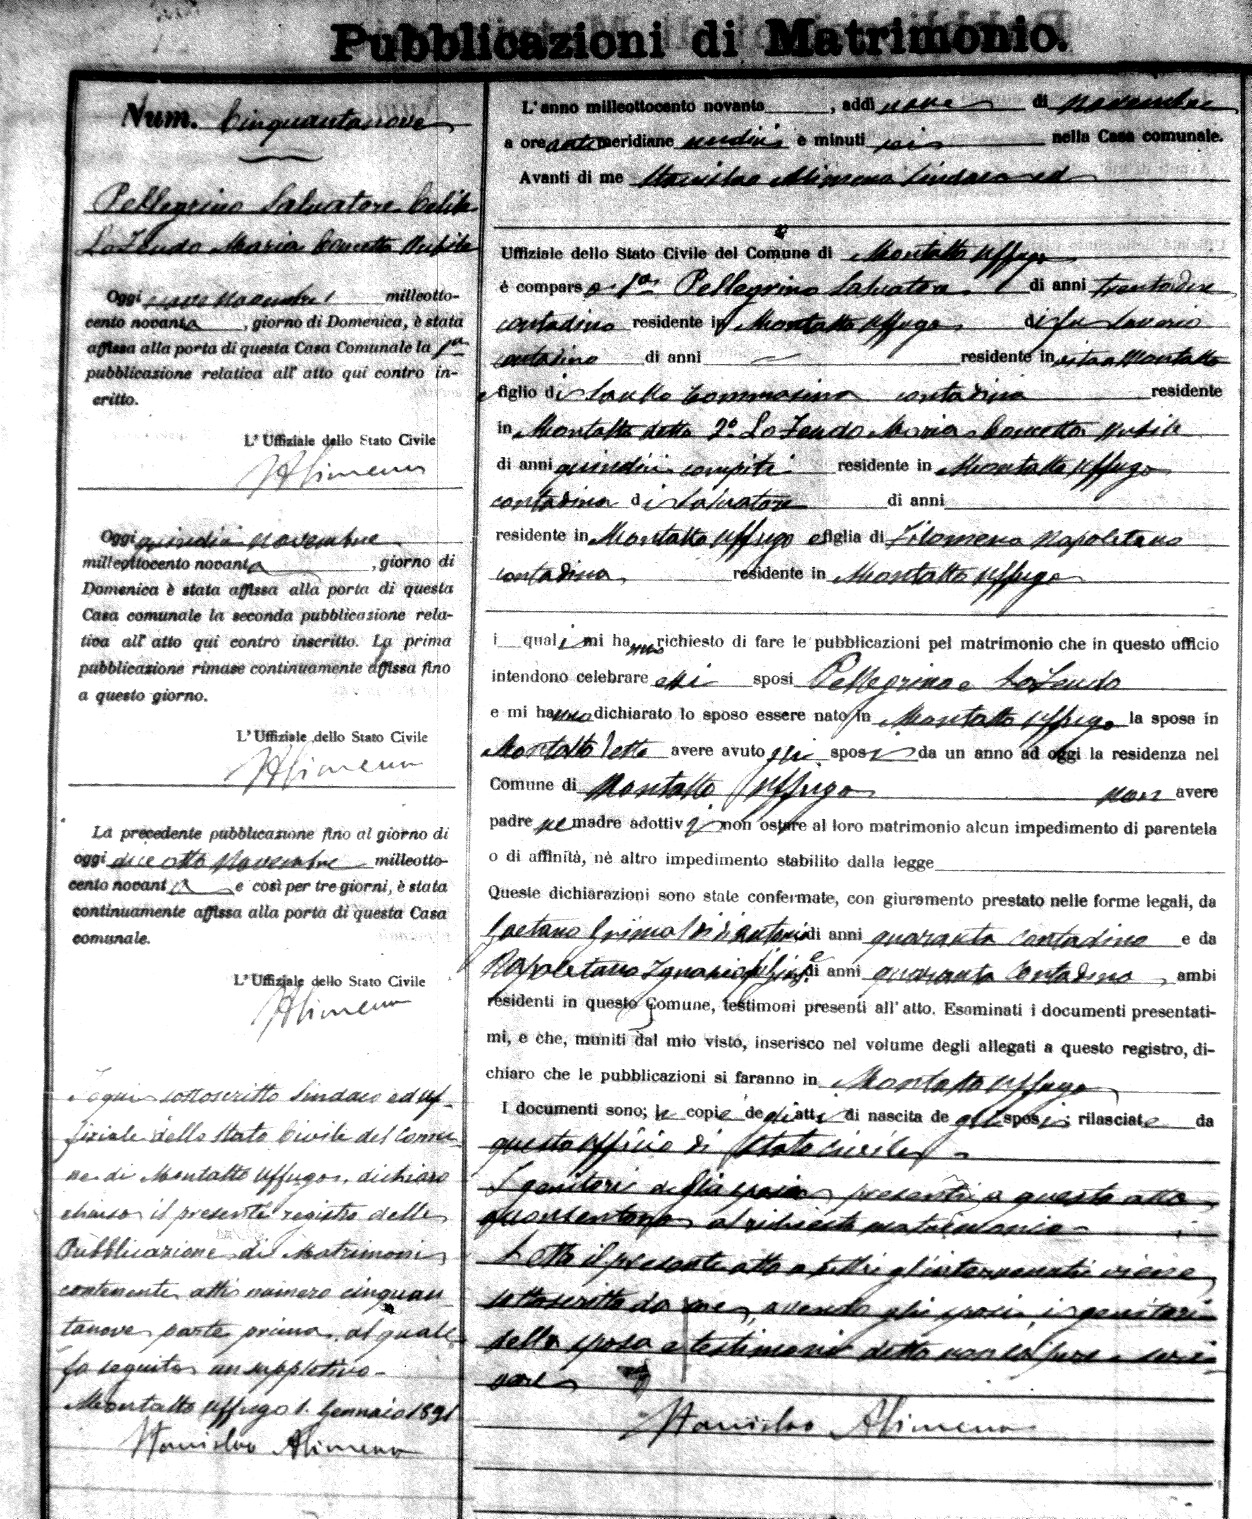 Pubblicazioni di Matrimonio.
Num. Cinquantanove
Pellegrino Salvatore Celibe
Lo Feudo Maria Concetta Nubile
Oggi nove Novembre milleotto-
cento novanta, giorno di Domenica, è stata
affissa alla porta di questa Casa Comunale la 1ª
pubblicazione relativa all' atto qui contro in-
critto.
L' Uffiziale dello Stato Civile
S Alimena
Oggi quindici Novembre
milleottocento novanta, giorno di
Domenica è stata affissa alla porta di questa
Casa comunale la seconda pubblicazione rela-
tiva all' atto qui contro inscritto. La prima
pubblicazione rimase continuamente affissa fino
a questo giorno.
L' Uffiziale dello Stato Civile
S Alimena
La precedente pubblicazione fino al giorno di
oggi dieciotto Novembre milleotto-
cento novanta e così per tre giorni, è stata
continuamente affissa alla porta di questa Casa
comunale.
L' Uffiziale dello Stato Civile
S Alimena
sottoscritto Sindaco ed Uf-
fiziale dello Stato Civile del Comu-
ne di Montalto Uffugo, dichiaro
chiuso il presente registro delle
Pubblicazione di Matrimoni
contenente atti numero cinquan-
tanove parte prima, al quale
fa seguito un suppletivo-
Montalto Uffugo 1. Gennaio 1891
Stanislao Alimena
L' anno milleottocento novanta, addì nove di novembre
a ore antimeridiane undici e minuti sei nella Casa comunale.
Avanti di me Stanislao Alimena Sindaco ed
Uffiziale dello Stato Civile del Comune di Montalto Uffugo
è compars 1º Pellegrino Salvatore di anni trentadue
contadino residente in Montalto Uffugo di fu Saverio
contadino di anni residente in Montalto
figlio di Tommasina contadina residente
in Montalto detto 2º Lo Feudo Maria Concetta nubile
di anni quindici compiti residente in Montalto Uffugo
contadina di Salvatore di anni
residente in Montalto Uffugo e figlia di Filomena Napoletano
contadina residente in Montalto Uffugo
i quali mi hanno richiesto di fare le pubblicazioni pel matrimonio che in questo ufficio
intendono celebrare essi sposi Pellegrino e Lo Feudo
e mi hanno dichiarato lo sposo essere nato in Montalto Uffugo la sposa in
Montalto detto avere avuto gli sposi da un anno ad oggi la residenza nel
Comune di Montalto Uffugo non avere
padre ne madre adottivi non ostare al loro matrimonio alcun impedimento di parentela
o di affinità, nè altro impedimento stabilito dalla legge
Queste dichiarazioni sono state confermate, con giuramento prestato nelle forme legali, da
Gaetano Grimoldi di Antonio di anni quaranta contadino e da
Napoletano Ignazio di anni quaranta contadino, ambi
residenti in questo Comune, testimoni presenti all' atto. Esaminati i documenti presentati-
mi, e che, muniti dal mio visto, inserisco nel volume degli allegati a questo registro, di-
chiaro che le pubblicazioni si faranno in Montalto Uffugo
I documenti sono; le copie degli atti di nascita de gli sposi; rilasciate da
questo Ufficio di Stato Civile.
I genitori della sposa presenti a questo atto
acconsentono al richiesto matrimonio-
Letto il presente atto a tutti gl'intervenuti viene
sottoscritto da me, avendo gli sposi, i genitori
della sposa e testimoni detto non sapere scri-
vere
Stanislao Alimena